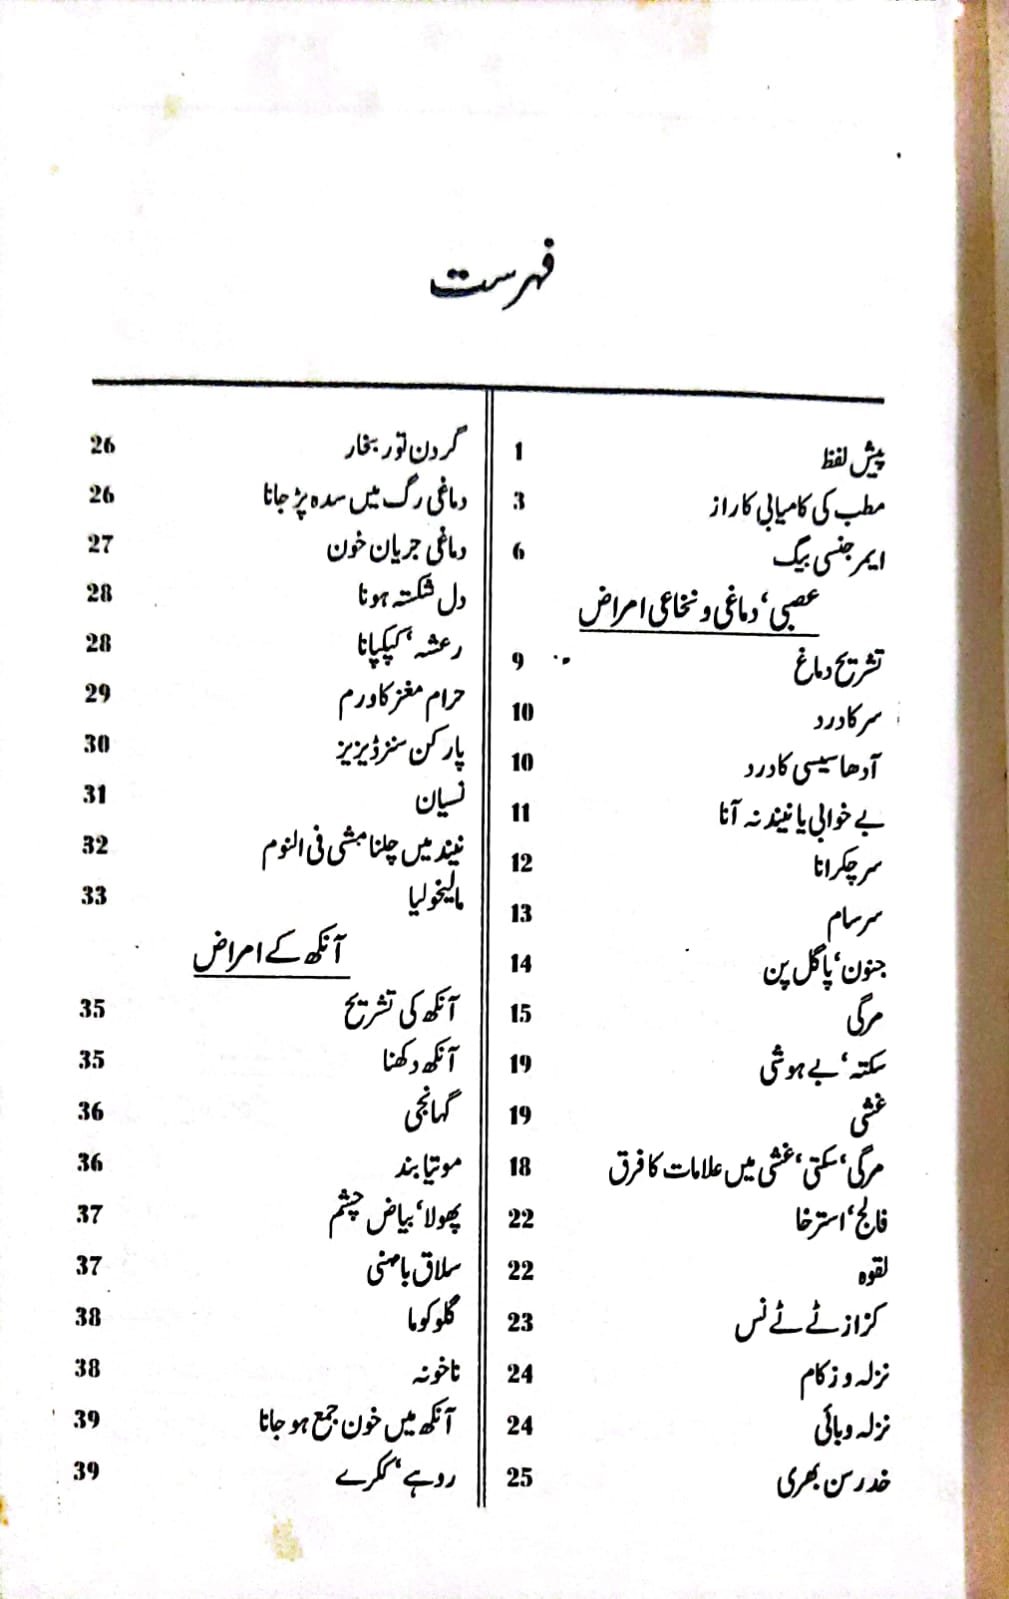 فہرست
پیش لفظ 1
مطب کی کامیابی کا راز 3
ایمرجنسی بیگ 6
عصبی، دماغی و نخاعی امراض
تشریح دماغ 9
سر کا درد 10
آدھا سیسی کا درد 10
بے خوابی یا نیند نہ آنا 11
سر چکرانا 12
سرسام 13
جنون، پاگل پن 14
مرگی 15
سکتہ، بے ہوشی 19
غشی 19
مرگی، سکتی، غشی میں علامات کا فرق 18
فالج، استرخا 22
لقوہ 22
کزاز ٹے ٹے نس 23
نزلہ و زکام 24
نزلہ وبائی 24
خدر سن بھری 25
گردن توڑ بخار 26
دماغی رگ میں سدہ پڑ جانا 26
دماغی جریان خون 27
دل شکستہ ہونا 28
رعشہ، کپکپانا 28
حرام مغز کا ورم 29
پارکن سنز ڈیزیز 30
نسیان 31
نیند میں چلنا مشی فی النوم 32
مالیخولیا 33
آنکھ کے امراض
آنکھ کی تشریح 35
آنکھ دکھنا 35
گہانجی 36
موتیا بند 36
پھولا، بیاض چشم 37
سلاق بامنی 37
گلوکوما 38
ناخونہ 38
آنکھ میں خون جمع ہو جانا 39
روہے، ککرے 39